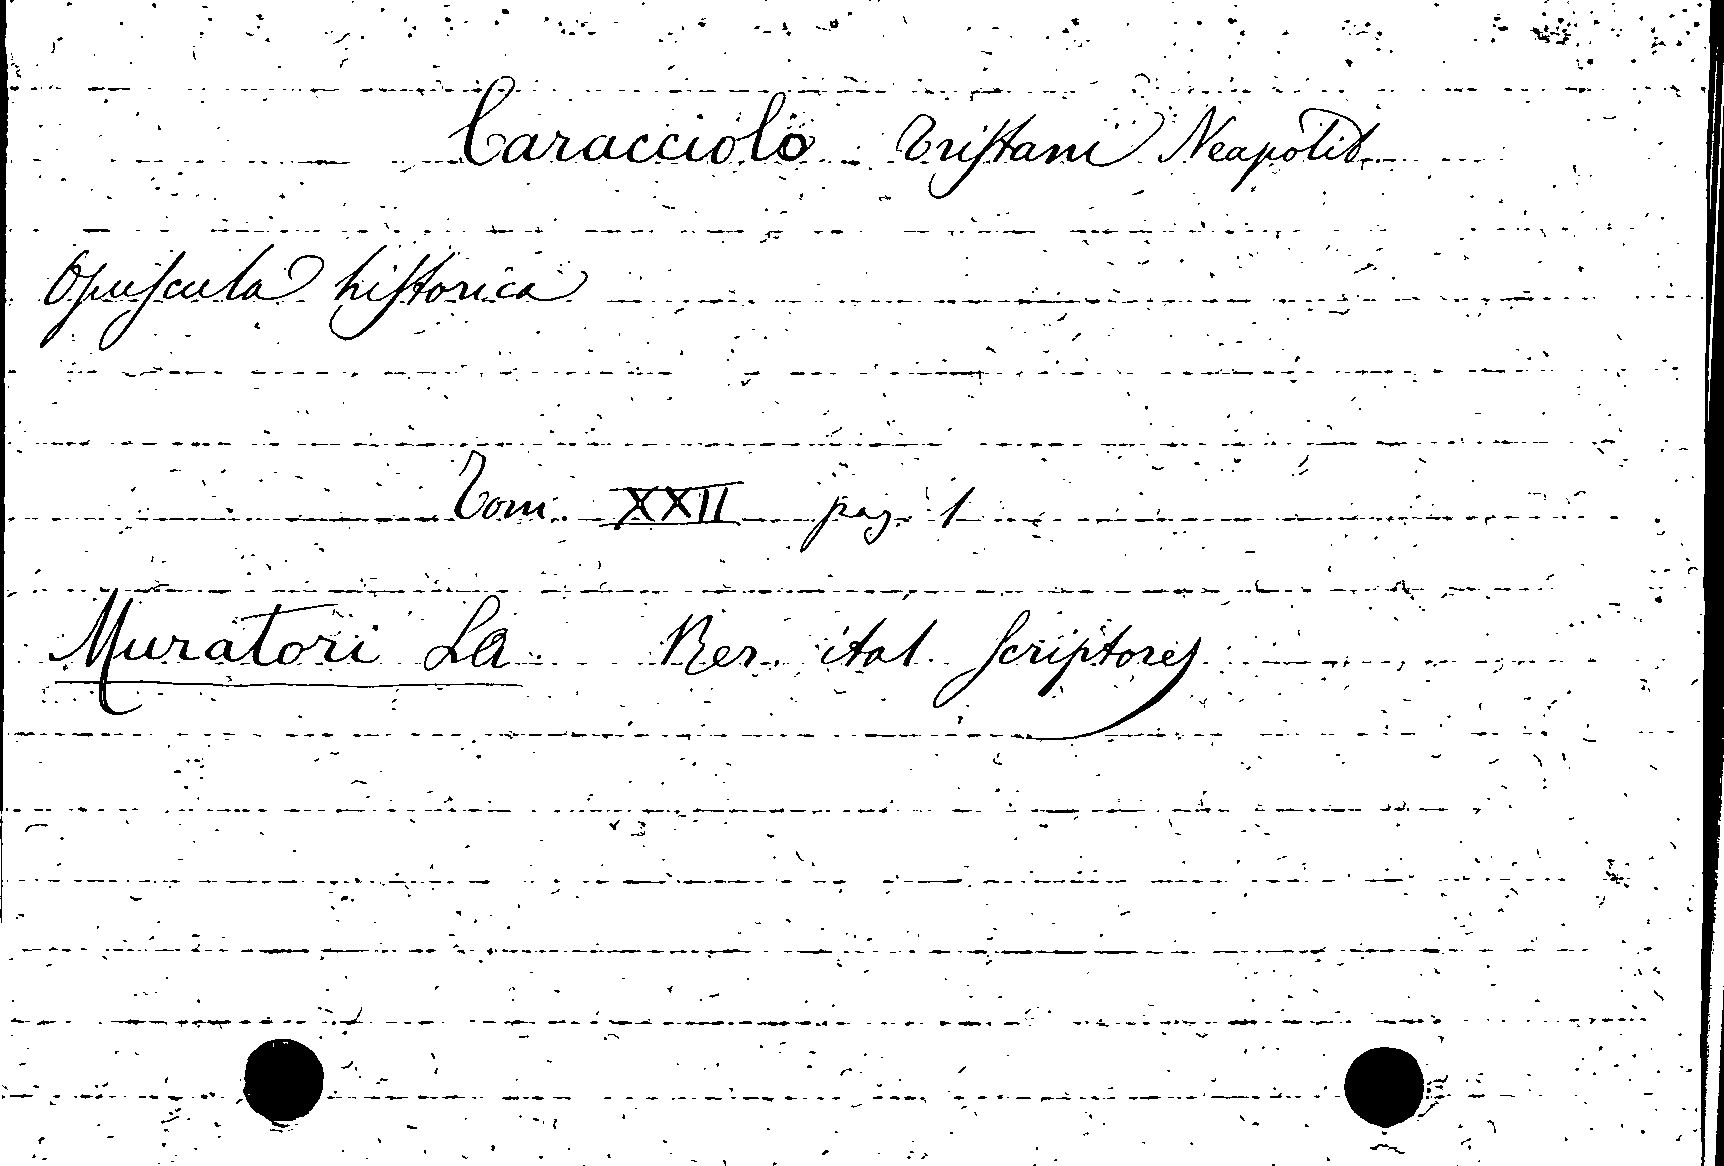 Caracciolo Tristani Neapolit.
Opuscula historica
Tom. XXII pag. 1
Muratori La Rer. ital. Scriptores